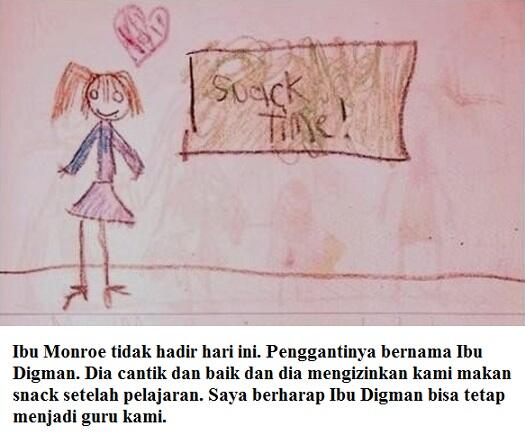 Snack
Time!
Ibu Monroe tidak hadir hari ini. Penggantinya bernama Ibu
Digman. Dia cantik dan baik dan dia mengizinkan kami makan
snack setelah pelajaran. Saya berharap Ibu Digman bisa tetap
menjadi guru kami.